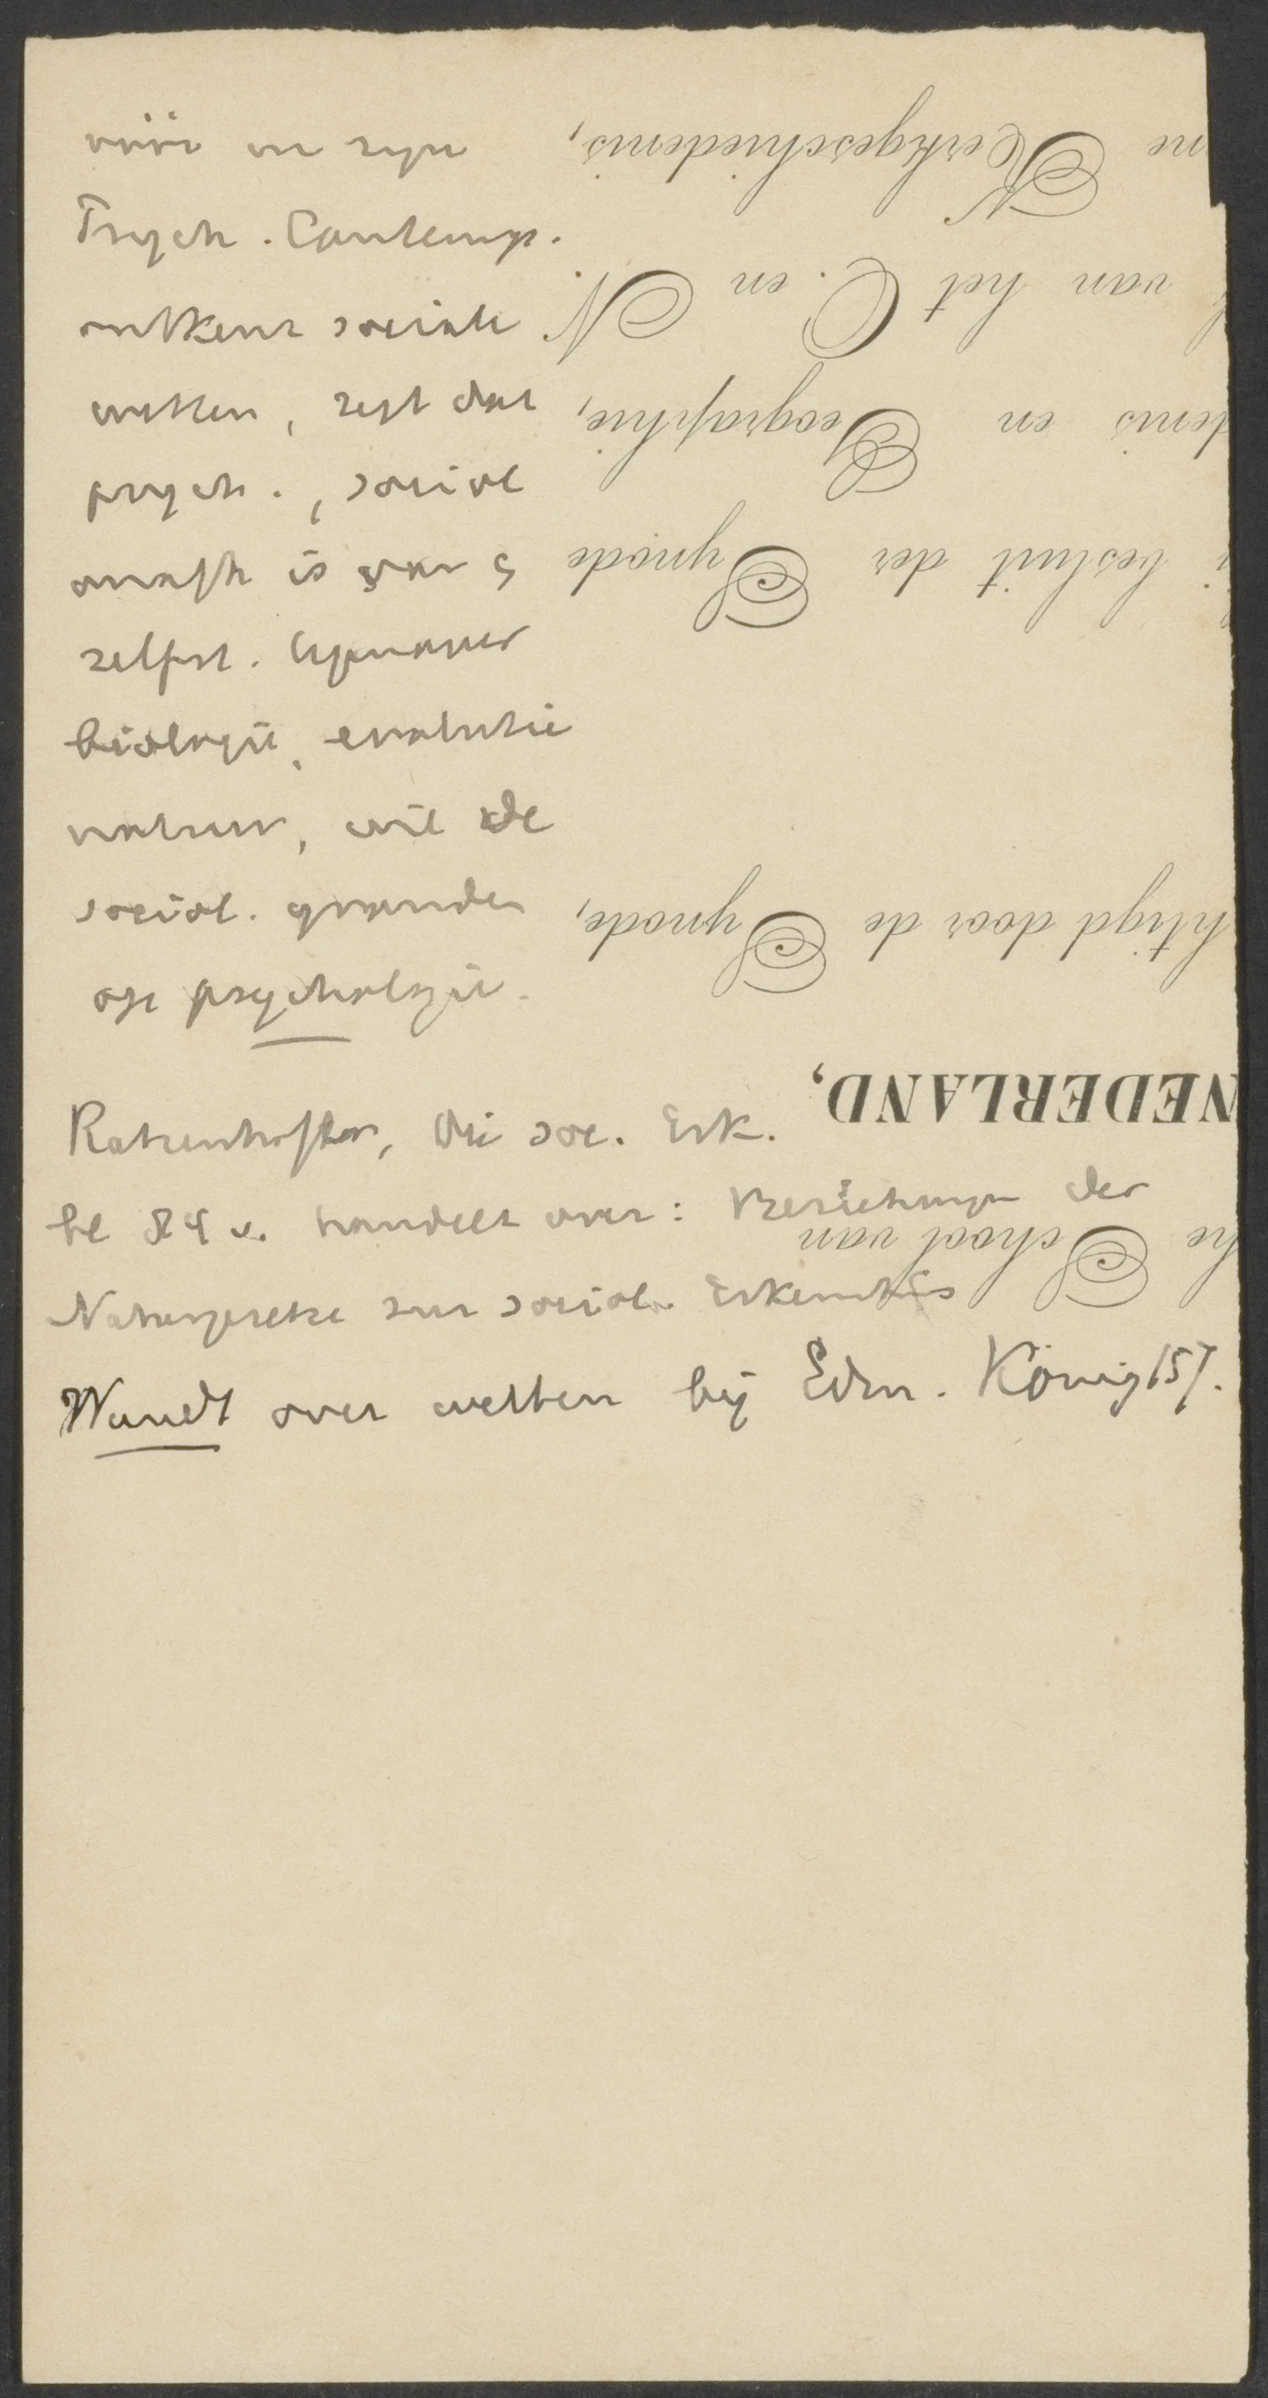 in zijn
Psych. Contemp.
ontkent sociale
wetten, zegt dat
psych., social
is van
zelfst. tegenover
biologie, evolutie
natuur, wil de
social. gronden
op psychologie.
Ratzenhofer, Die soc. Erk.
bl 84 v. handelt over: Beziehungen der
Naturgesetze zur social. Erkenntnis
Wundt over wetten bij Edm. König 157.
he School van
NEDERLAND,
htigd door de Synode,
besluit der Synode
denis en Geographie,
van het O. en N.
ne Kerkgeschiedenis,